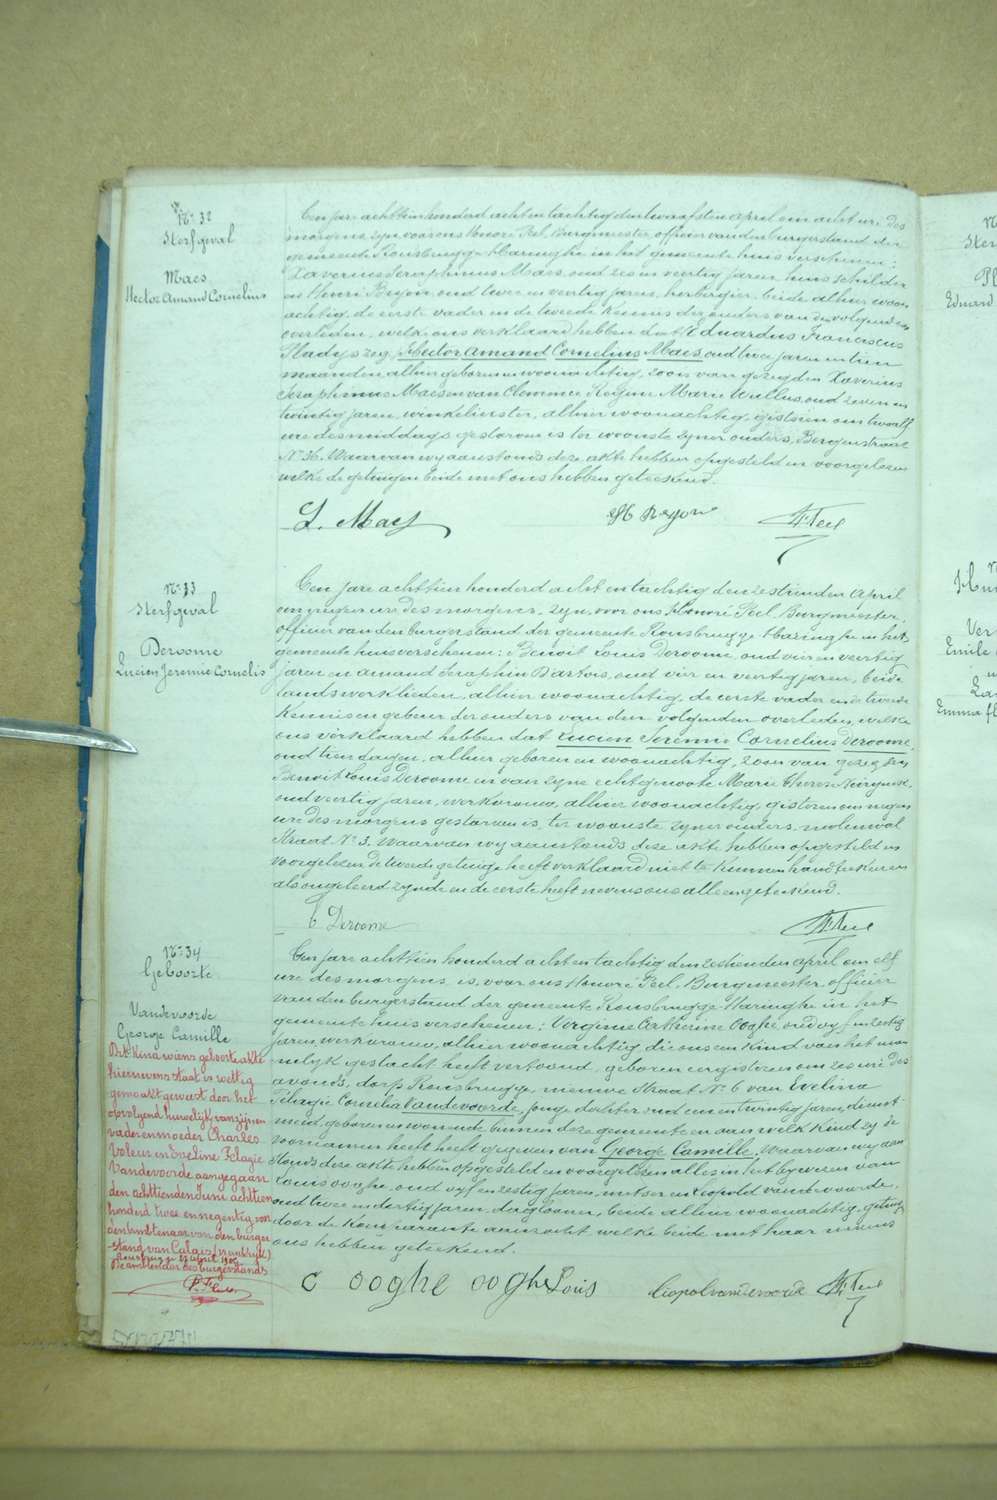 N° 32
Sterfgeval
Maes
Hector Amand Cornelius
Een jare achttien honderd acht en tachtig den twaalfsten april om acht ure des
morgens, zyn voor ons Honoré Peel, Burgmeester, officier van den burgerstand der
gemeente Rousbrugge-Haringhe in het gemeente huis verschenen:
Xaverius Seraphinus Maes, oud zes en veertig jaren, huis schilder
en Henri Beyon, oud twee en veertig jaren, herbergier, beide alhier woon
achtig, de eerste vader en de tweede kennis der ouders van den volgenden
overleden, welke ons verklaard hebben dat Eduardus Franciscus
Hladys zeg Hector Amand Cornelius Maes, oud twee jaren en tien
maanden alhier geboren en woonachtig, zoon van gezegden Xaverius
Seraphinus Maes en van Clemence Regine Marie Wullus, oud zeven en
twintig jaren, winkelierster, alhier woonachtig, gisteren om twaalf
ure des middags gestorven is ter woonste zyner ouders, Bergenstraat
N° 36. Waarvan wy aanstonds deze akte hebben opgesteld en voorgelezen
welke de getuigen beide met ons hebben geteekend.
H. Peel
N° 33
Sterfgeval
Deroome
Lucien Jeremie Cornelis
Een jare achttien honderd acht en tachtig den zestienden April
om negen ure des morgens, zyn, voor ons Honoré Peel Burgmeester,
officier van den burgerstand der gemeente Rousbrugge-Haringhe in het
gemeente huis verschenen: Benoit Louis Deroome, oud vier en veertig
jaren en Amand Seraphin Dartois, oud vier en veertig jaren, beide
landswerklieden, alhier woonachtig, de eerste vader en de tweede
kennis en gebuur der ouders van den volgenden overleden, welke
ons verklaard hebben dat Lucien Jeremie Cornelius Deroome,
oud tien dagen, alhier geboren en woonachtig, zoon van gezegden
Benoit Louis Deroome en van zyne echtgenoote Marie Therese
oud veertig jaren, werkvrouw, alhier woonachtig, gisteren om negen
ure des morgens gestorven is, ter woonste zyner ouders, molenwal
straat N° 3. Waarvan wy aanstonds deze akte hebben opgesteld en
voorgelezen de tweede getuige heeft verklaard niet te kunnen handteekenen
als ongeleerd zynde en de eerste heeft nevens ons alleen geteekend.
b Deroome
H. Peel
N° 34
Geboorte
Vandevoorde
George Camille
Dit kind wiens geboorte akte
hiernevens staat is wettig
gemaakt geweest door het
opvolgend huwelijk van zijnen
vader en moeder Charles
Valeur en Eveline Pelagie
Vandevoorde aangegaan
den achttienden Juni achttien
honderd twee en negentig voor
den ambtenaar van den burger
stand van Calais (Frankrijk)
De ambtenaar des burgerstands
Een jare achttien honderd acht en tachtig den zestienden april om elf
ure des morgens is, voor ons Honore Peel, Burgmeester officier
van den burgerstand der gemeente Rousbrugge-Haringhe in het
gemeente huis verschenen: Virginie Catherine Ooghe oud vyf en zestig
jaren werkvrouw, alhier woonachtig die ons een kind van het man
nelyk geslacht heeft vertoond, geboren eergisteren om zes ure des
avonds, dorp Rousbrugge, nieuwe straat N° 6 van Evelina
Pelagie Cornelia Vandevoorde, jonge dochter oud een en twintig jaren, dienst
meid geboren en wonende binnen deze gemeente en aan welk kind zy de
voornamen heeft gegeven van George Camille. Waarvan wy aan
stonds deze akte hebben opgesteld en voorgelezen alles in het bywezen van
Louis Ooghe, oud vyf en zestig jaren, metser en Leopold Vandevoorde,
oud twee en dertig jaren, daglooner, beide alhier woonachtig, getuigen
door de komparante aanzocht welke beide met haar nevens
ons hebben geteekend.
C ooghe ooghe Louis Leopol vandevoorde H. Peel